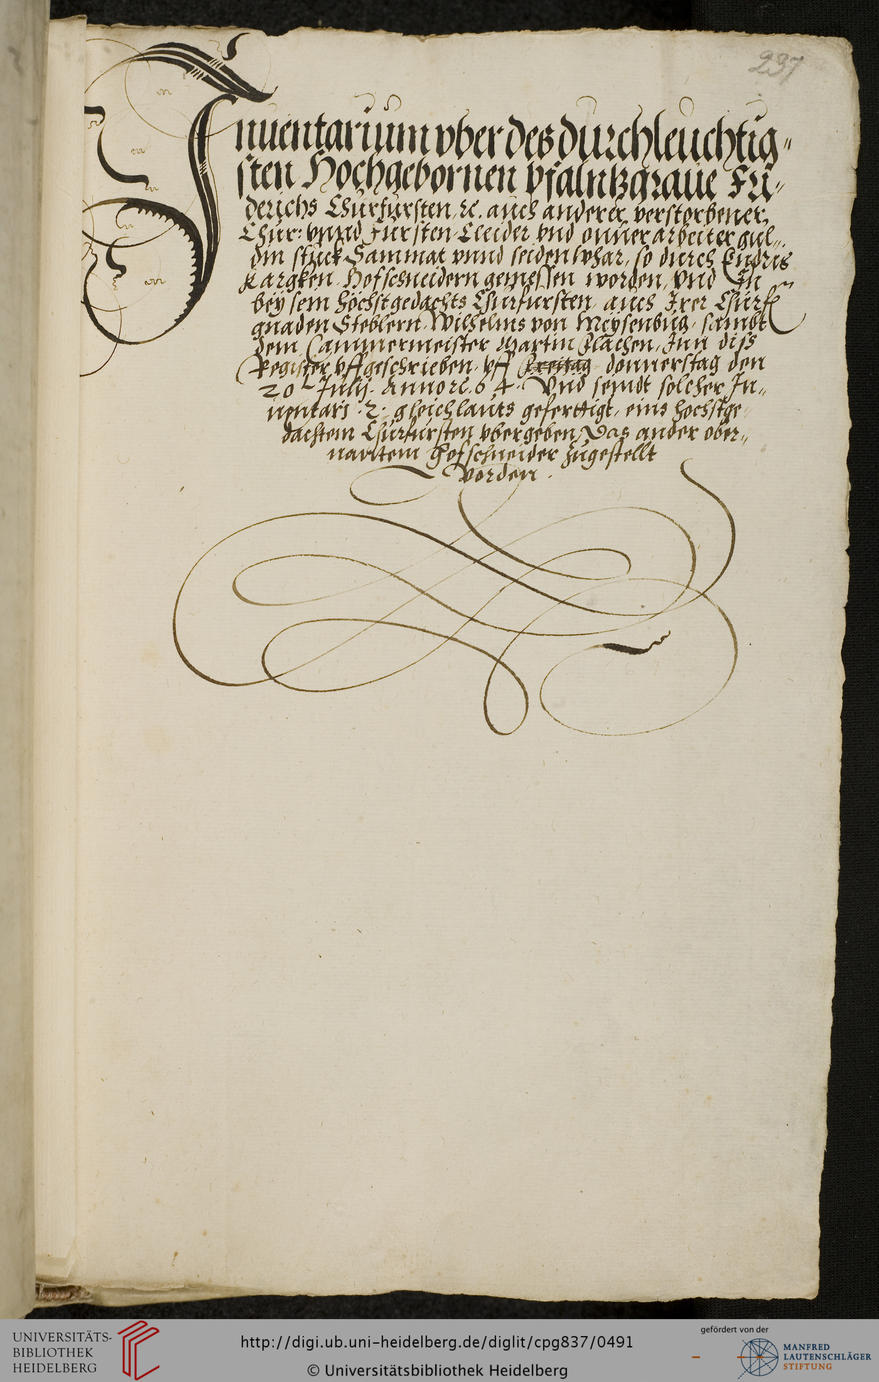 237
Inuentarium vber des durchleuchtig-
sten Hochgebornen Pfaltzgraue Fri-
derichs Churfursten, rc. auch anderer, verstorbener,
Chur: vnnd Fursten Cleider vnd onuerarbeiter gul-
din stuck Sammat vnnd seiden whar, so durch Endris
Kargken Hofschneidern gemessen worden, vnd In
beysein höchstgedachts Churfursten, auch Irer Churf
gnaden Steblern, Wilhelms von Meysenbug, sambt
dem Cammermeister Martin Inn diss
Register vffgeschrieben vff Freitag donnerstag den
20 Julij. Anno rc. 64. Vnd seindt solcher In-
uentari .2. gleichlauts geferttigt, eins hochstge
dachtem Churfursten vbergeben, Das ander ober-
nantem Hofschneider zugestellt
worden.
UNIVERSITÄTS-
BIBLIOTHEK
HEIDELBERG
http://digi.ub.uni-heidelberg.de/diglit/cpg837/0491
© Universitätsbibliothek Heidelberg
gefördert von der
MANFRED
LAUTENSCHLÄGER
STIFTUNG